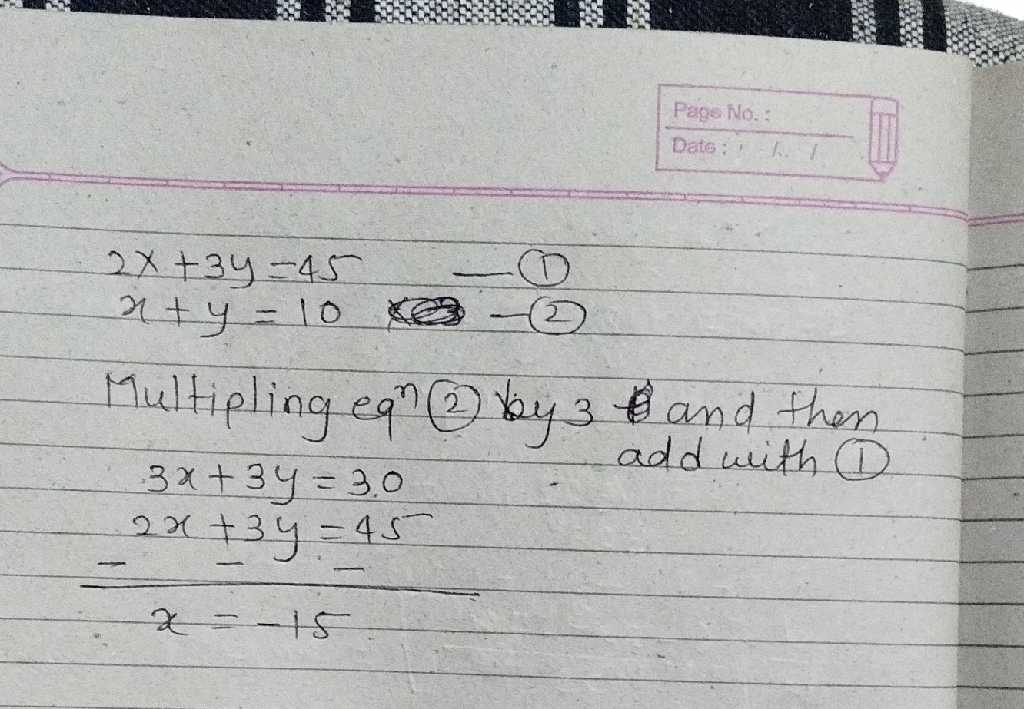 Page No. :
Date : / /
2x + 3y = 45 — ①
x + y = 10 — ②
Multipling eqⁿ ② by 3 and then
add with ①
3x + 3y = 30
2x + 3y = 45
— — —
x = -15